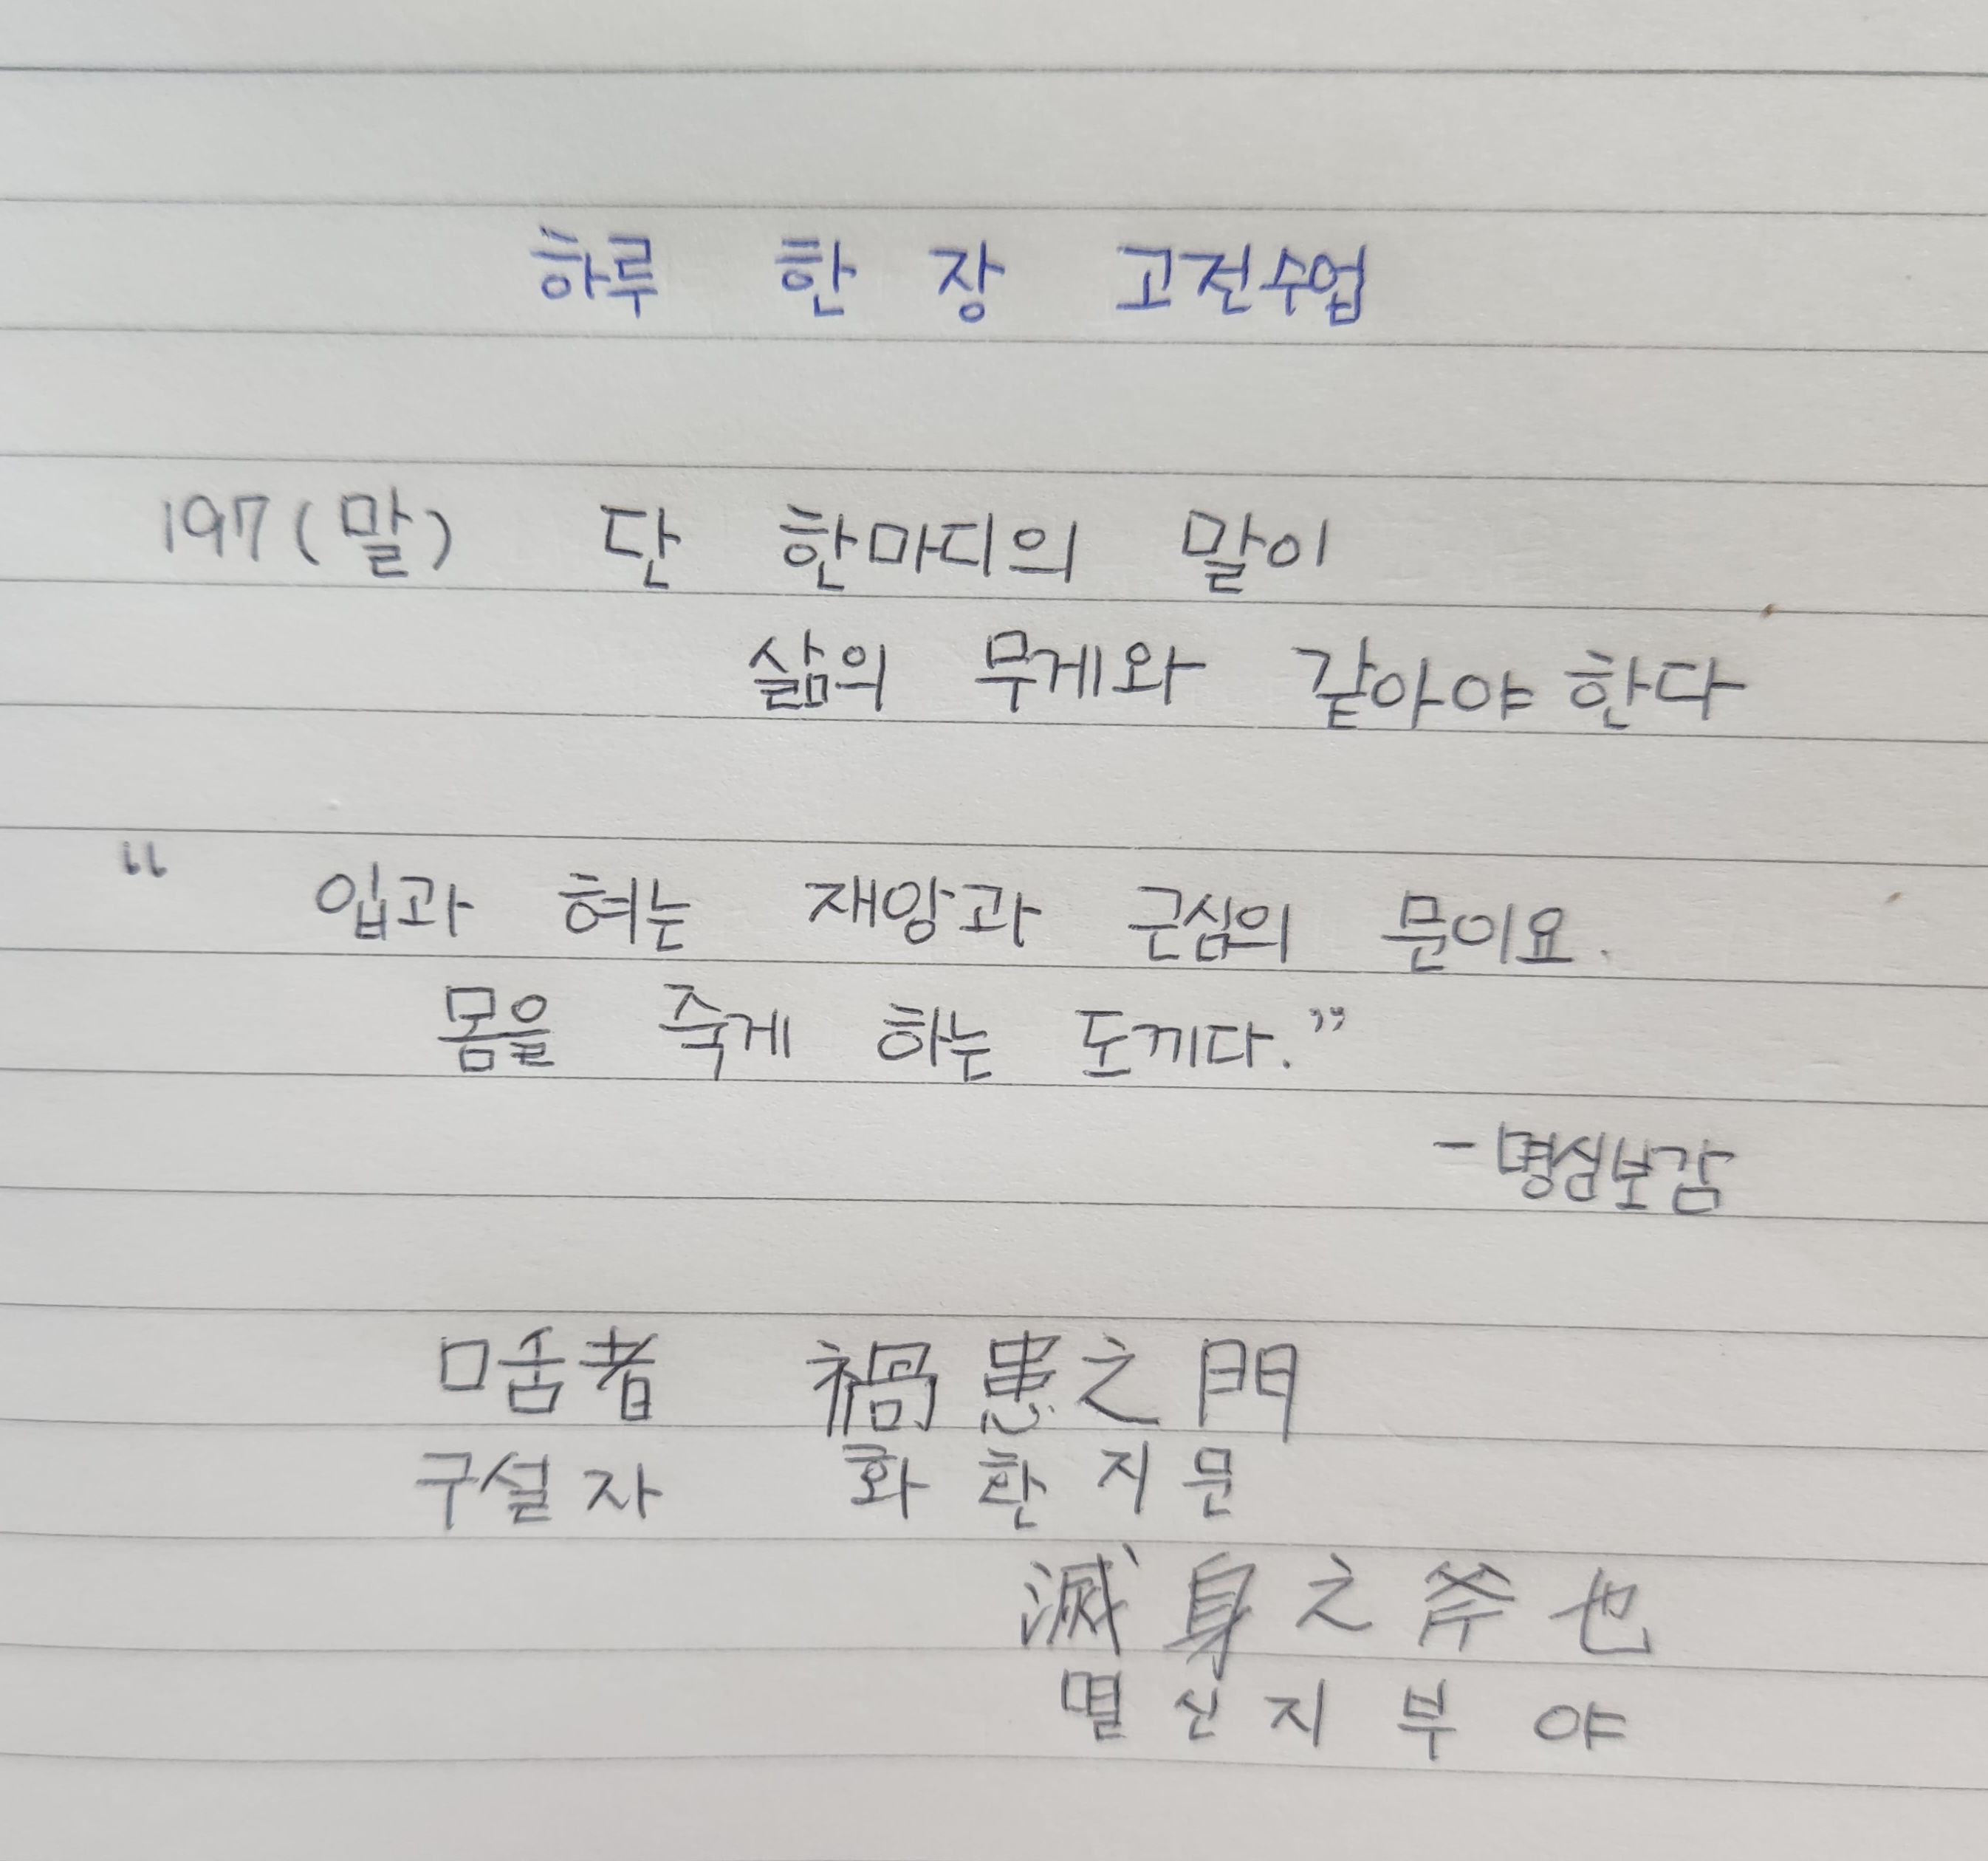 하루 한 장 고전수업
197(말) 단 한마디의 말이
삶의 무게와 같아야 한다
“ 입과 혀는 재앙과 근심의 문이요.
몸을 죽게 하는 도끼다.”
- 명심보감
口舌者 禍患之門
구설자 화환지문
滅身之斧也
멸신지부야